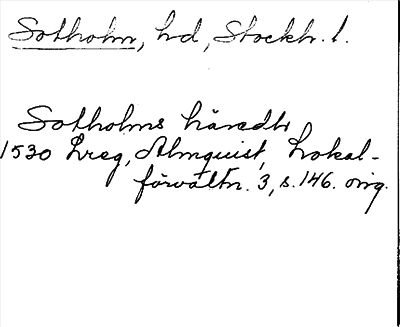 Sotholm, hd, Stockh. l.
Sotholms häredh
1530 Lreg, Almquist, Lokal-
förvaltn. 3, s. 146. orig.